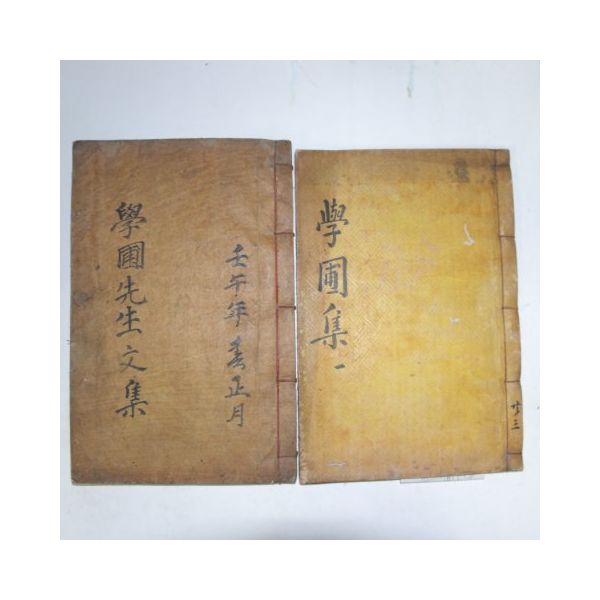 學圃先生文集
壬午年春正月
學圃集一
共三